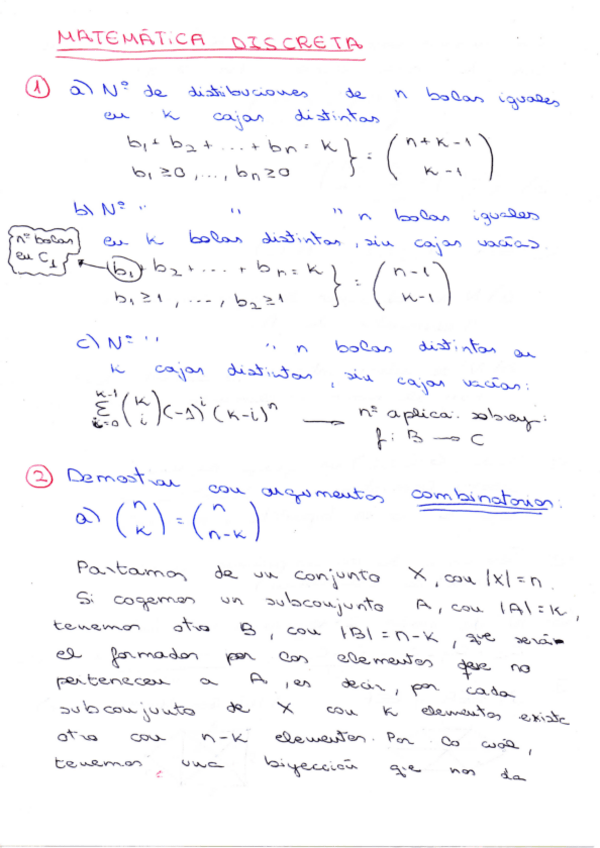 MATEMÁTICA DISCRETA
① a) Nº de distibuciones de n bolas iguales
en k cajas distintas
b₁ + b₂ + ... + bn = k } = (n+k-1
b₁ ≥ 0, ..., bn ≥ 0 k-1)
b) Nº " " " n bolas iguales
en k bolas distintas, sin cajas vacías.
nº bolas en C₁
b₁ + b₂ + ... + bn = k } = (n-1
b₁ ≥ 1, ..., b₂ ≥ 1 k-1)
c) Nº " " n bolas distintas en
k cajas distintas, sin cajas vacías:
∑_{i=0}^{k-1} (k i) (-1)^i (k-i)^n → nº aplica. sobrey:
f: B → C
② Demostrar con argumentos combinatorios:
a) (n k) = (n n-k)
Partamos de un conjunto X, con |X| = n.
Si cogemos un subconjunto A, con |A| = k,
tenemos otro B, con |B| = n-k, que será
el formados por los elementos que no
pertenecen a A, es decir, por cada
subconjunto de X con k elementos existe
otro con n-k elementos. Por lo cual,
tenemos una biyección que nos da